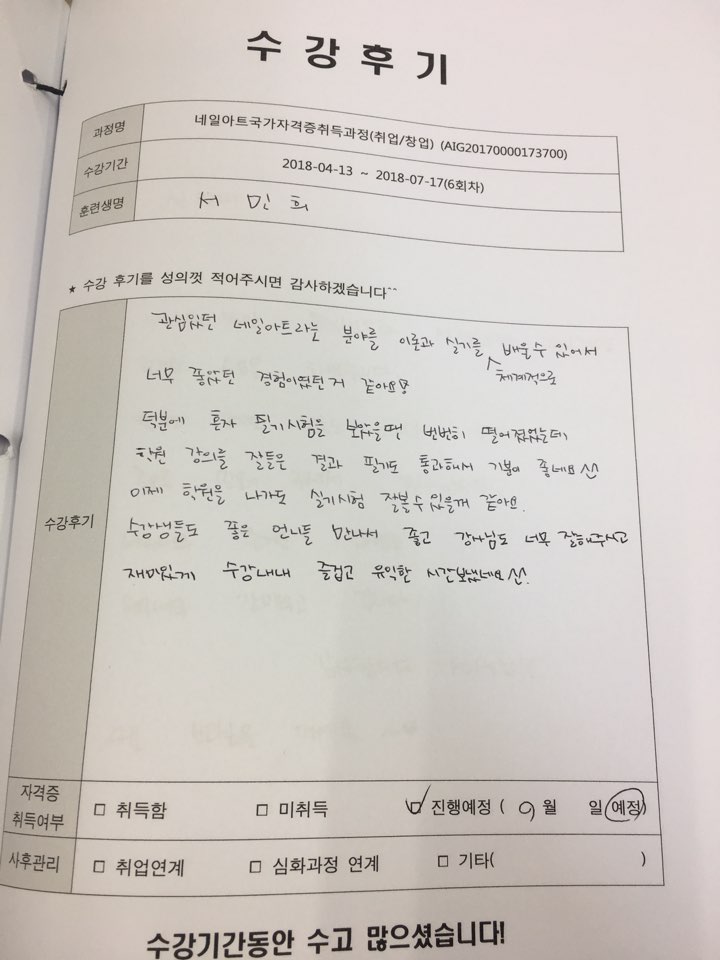 수강후기
과정명 네일아트국가자격증취득과정(취업/창업) (AIG20170000173700)
수강기간 2018-04-13 ~ 2018-07-17(6회차)
훈련생명 서민희
★ 수강 후기를 성의껏 적어주시면 감사하겠습니다^^
관심있던 네일아트라는 분야를 이론과 실기를 체계적으로 배울수 있어서
너무 좋았던 경험이였던거 같아요!
덕분에 혼자 필기시험을 봤을땐 번번히 떨어졌었는데,
학원 강의를 잘들은 결과 필기도 통과해서 기분이 좋네요^^
이제 학원을 나가도 실기시험 잘볼수있을꺼 같아요.
수강후기
수강생들도 좋은 언니들 만나서 좋고 강사님도 너무 잘해주시고
재미있게 수강내내 즐겁고 유익한 시간보냈네요^^.
자격증 취득여부 □ 취득함 □ 미취득 ☑ 진행예정 ( 9월 일 예정)
사후관리 □ 취업연계 □ 심화과정 연계 □ 기타( )
수강기간동안 수고 많으셨습니다!